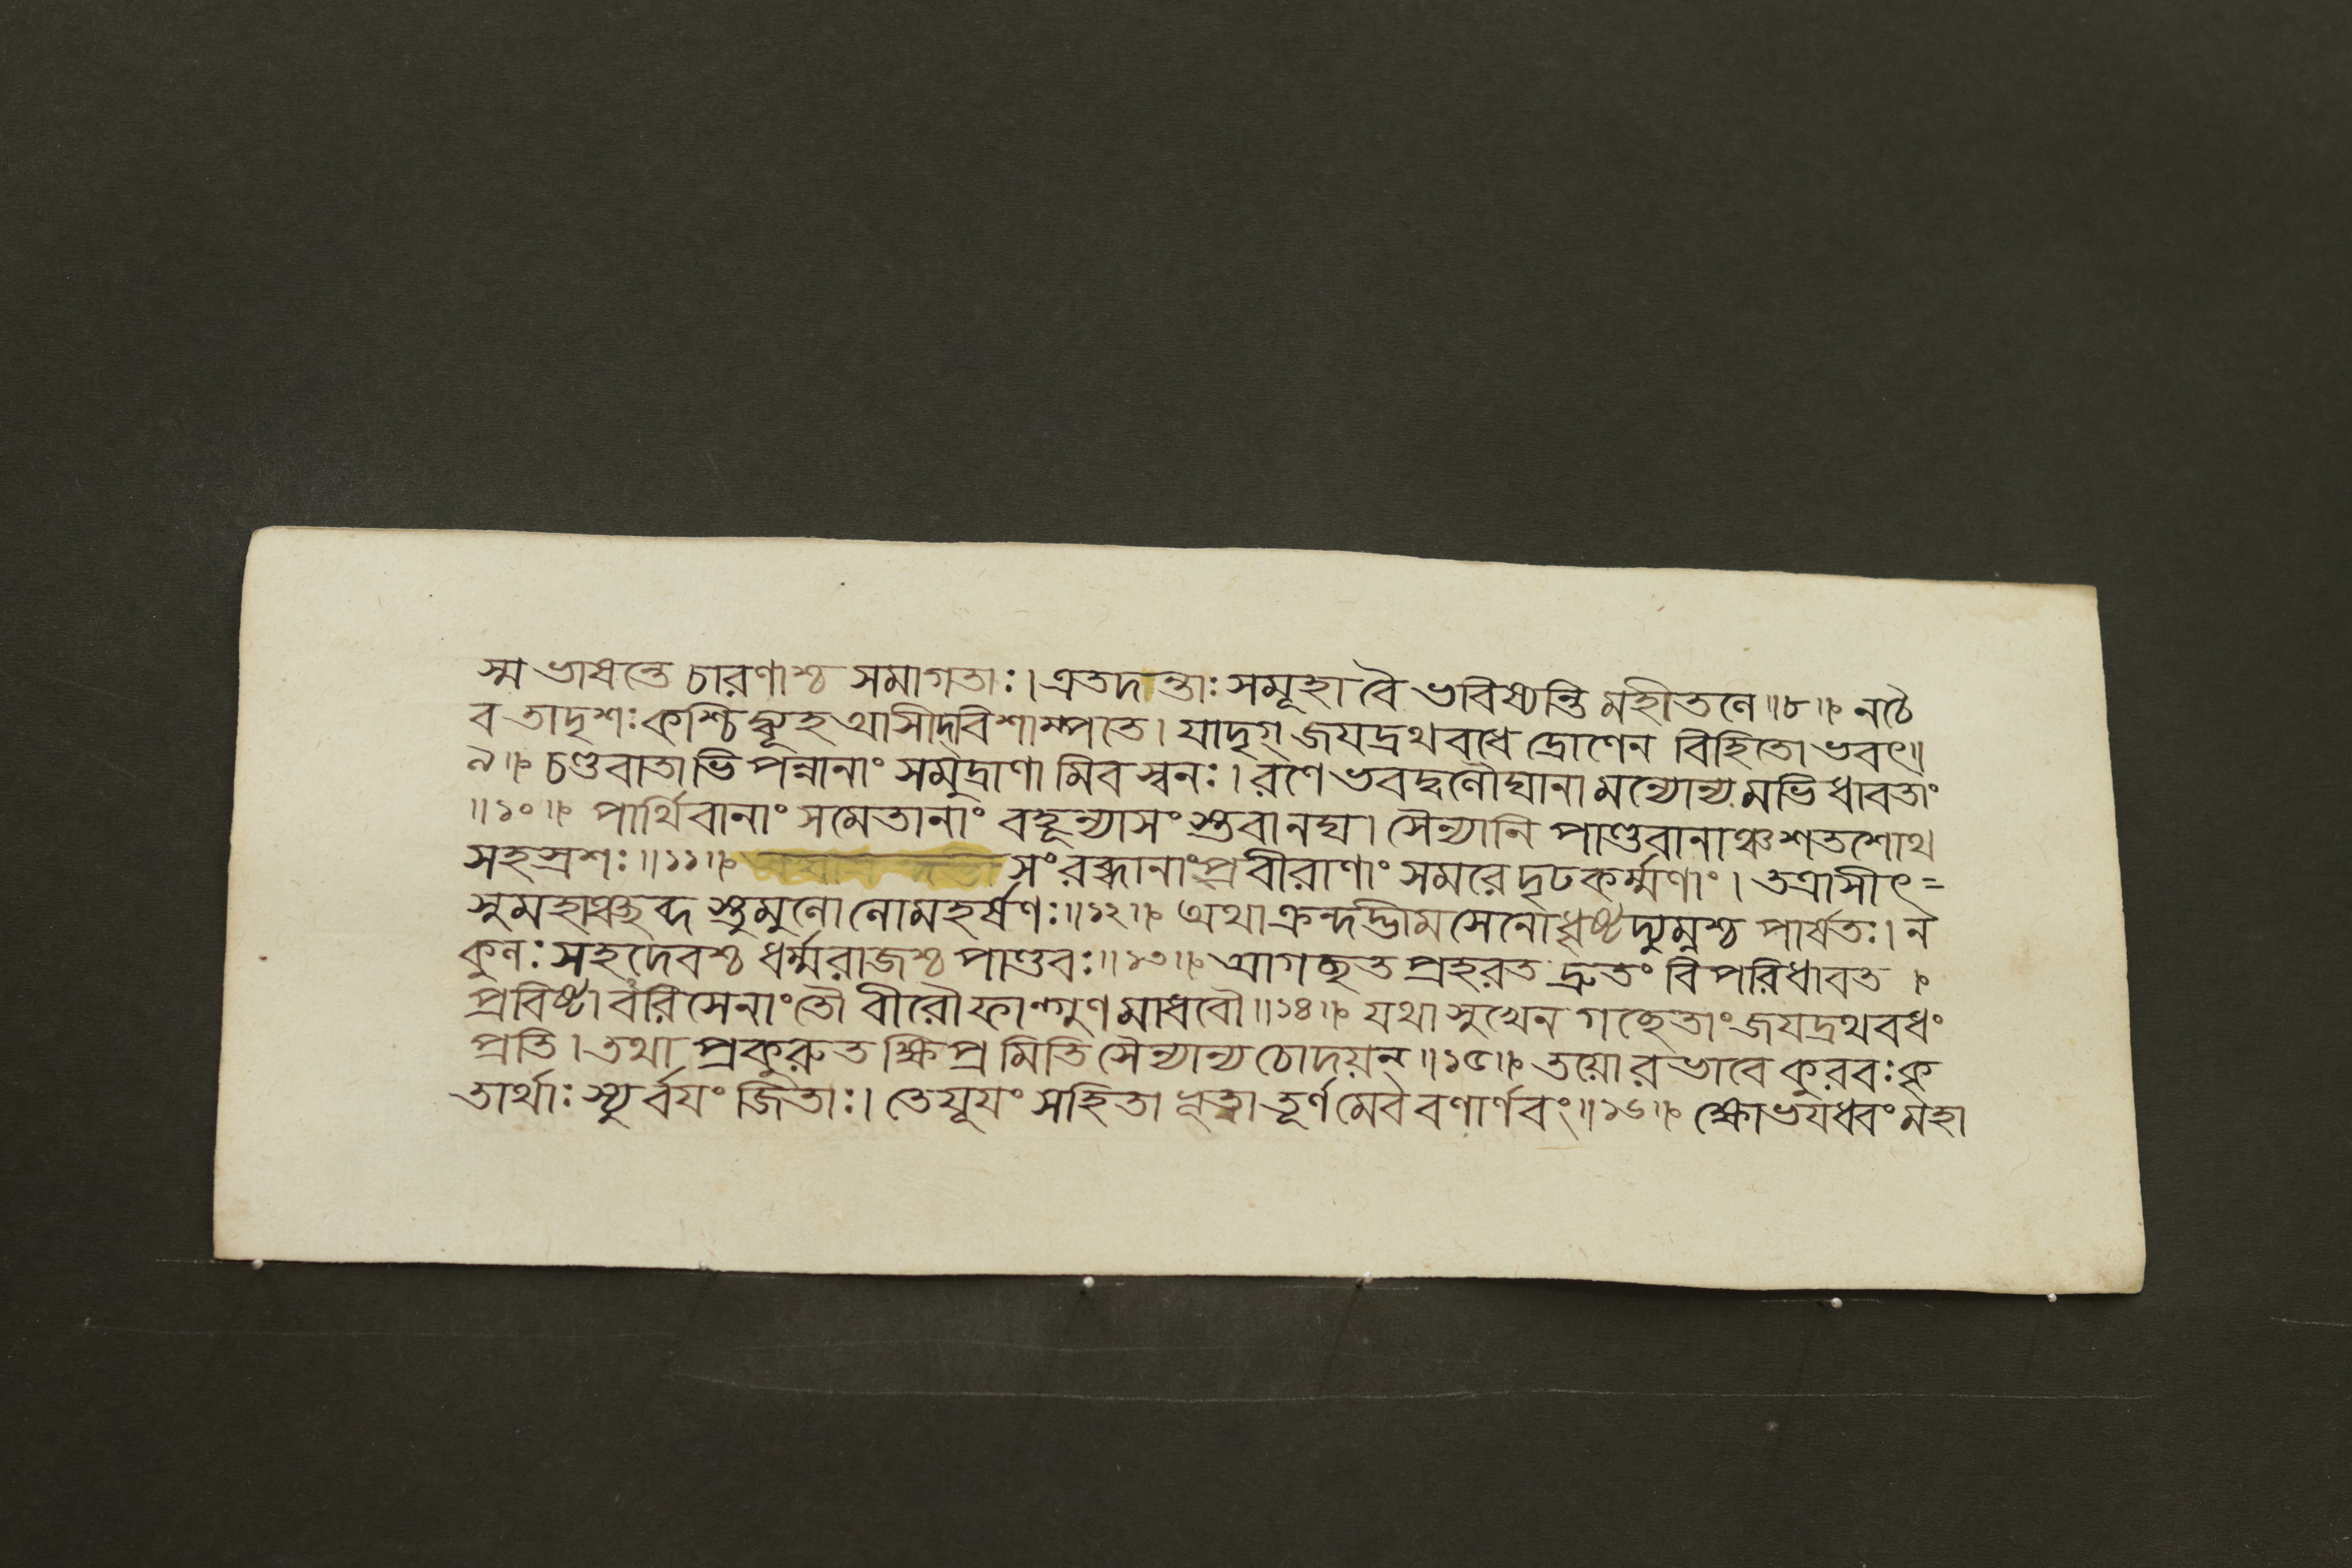 স্ম ভাষন্তে চারণাশ্চ সমাগতাঃ। এতদন্তাঃ সমূহা বৈ ভবিষ্যন্তি মহীতলে॥৮॥ নচৈ
ব তাদৃশঃ কশ্চিদ্ব্যূহ আসীদ্বিশাম্পতে। যাদৃগ্ জযদ্রথবধে দ্রোণেন বিহিতো ভবৎ॥
৯॥ চণ্ডবাতাভিপন্নানাং সমুদ্রাণামিব স্বনঃ। রণে ভবদ্বলৌঘানামন্যোন্যমভিধাবতাং
॥১০॥ পার্থিবানাং সমেতানাং বহূন্যাসং স্তবানঘ। সৈন্যানি পাণ্ডবানাঞ্চ শতশোথ
সহস্রশঃ॥১১॥ সংরব্ধানাং প্রবীরাণাং সমরে দৃঢকর্ম্মণাং। তত্রাসীৎ=
সুমহাঞ্ছব্দ স্তুমুলো লোমহর্ষণঃ॥১২॥ অথাক্রন্দদ্ভীমসেনো ধৃষ্টদ্যুম্নশ্চ পার্ষতঃ। ন
কুলঃ সহদেবশ্চ ধর্ম্মরাজশ্চ পাণ্ডবঃ॥১৩॥ আগচ্ছত প্রহরত দ্রুতং বিপরিধাবত।
প্রবিষ্টাবরিসেনাং তৌ বীরৌ ফাল্গুণমাধবৌ॥১৪॥ যথা সুখেন গচ্ছেতাং জযদ্রথবধং
প্রতি। তথা প্রকুরুত ক্ষিপ্রমিতি সৈন্যান্যচোদয়ন্॥১৫॥ তয়োরভাবে কুরবঃ কৃ
তার্থাঃ স্যুর্বযং জিতাঃ। তে যূযং সহিতা ভূত্বা তূর্ণমেব বলার্ণবং॥১৬॥ ক্ষোভযধ্বং মহা